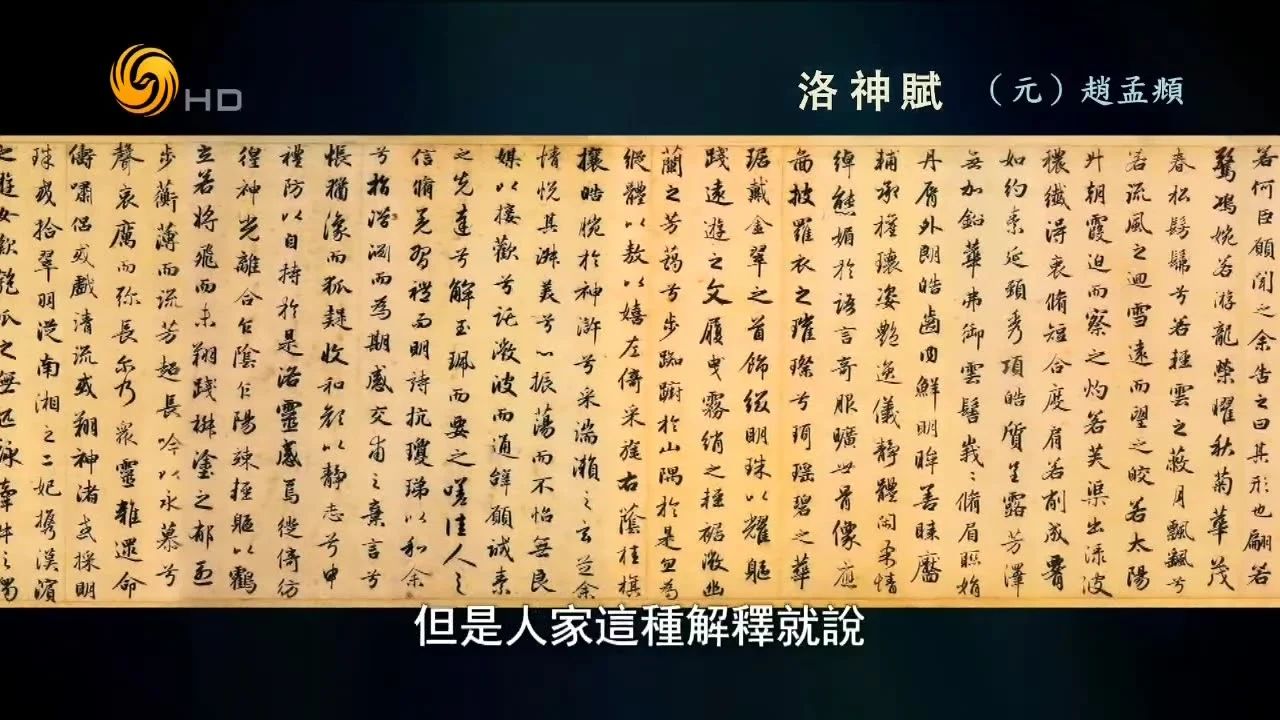 HD
洛神賦 （元）趙孟頫
若何臣願聞之余告之曰其形也翩若
驚鴻婉若游龍榮曜秋菊華茂
春松髣髴兮若輕雲之蔽月飄飄兮
若流風之迴雪遠而望之皎若太陽
升朝霞迫而察之灼若芙渠出淥波
穠纖得衷脩短合度肩若削成腰
如約素延頸秀項皓質呈露芳澤
無加鉛華弗御雲髻峩〻脩眉聯娟
丹脣外朗皓齒內鮮明眸善睞靨
輔承權瓌姿艷逸儀靜體閑柔情
綽態媚於語言奇服曠世骨像應
圖披羅衣之璀璨兮珥瑤碧之華
琚戴金翠之首飾綴明珠以耀軀
踐遠遊之文履曳霧綃之輕裾微幽
蘭之芳藹兮步踟躕於山隅於是忽焉
縱體以敖以嬉左倚采旄右蔭桂旗
攘皓腕於神滸兮采湍瀨之玄芝余
情悅其淑美兮心振蕩而不怡無良
媒以接歡兮託微波而通辭願誠素
之先達兮解玉珮而要之嗟佳人之
信脩羌習禮而明詩抗瓊珶以和余
兮指潛淵而為期感交甫之棄言兮
悵猶豫而狐疑收和顏以靜志兮申
禮防以自持於是洛靈感焉徙倚彷
徨神光離合乍陰乍陽竦輕軀以鶴
立若將飛而未翔踐椒塗之郁烈
步蘅薄而流芳超長吟以永慕兮
聲哀厲而弥長尔乃眾靈雜遝命
儔嘯侶或戲清流或翔神渚或採明
珠或拾翠羽從南湘之二妃攜漢濱
之遊女歎匏瓜之無匹詠牽牛之獨
但是人家這種解釋就說